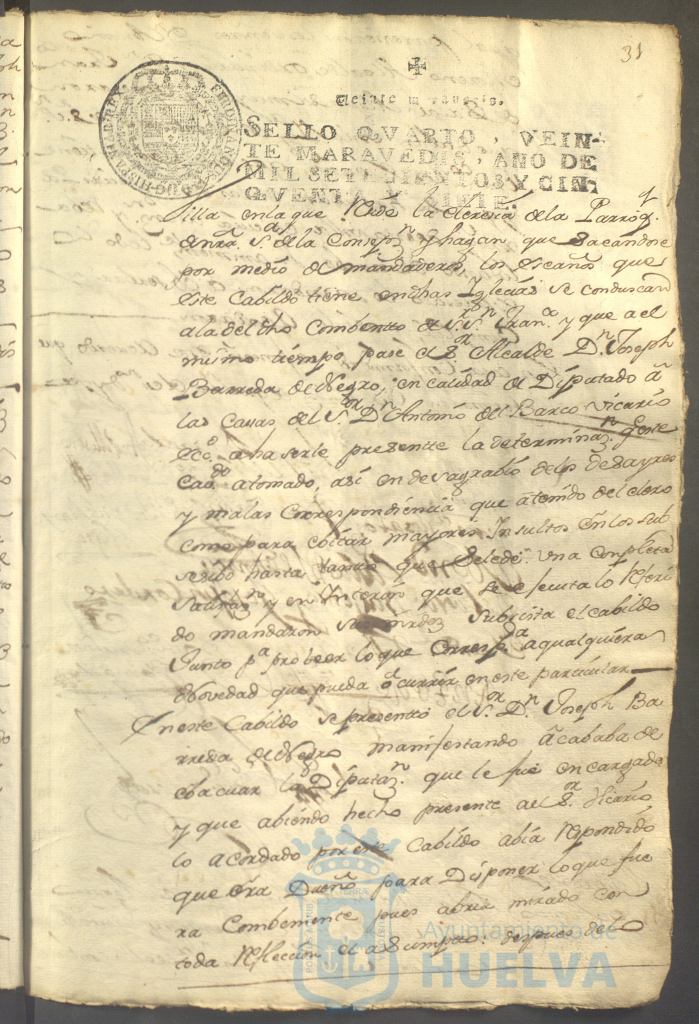 31
Veinte maravedis.
SELLO QVARTO, VEIN-
TE MARAVEDIS, AÑO DE
MIL SETECIENTOS Y CIN-
QVENTA Y SIETE.
Villa en la que la Clerecia de la Parroq.
de nra. S.ª de la Consepz.n y hagan que sacandose
por medio de mandaderos, los escaños que
este Cabildo tiene en dhas Iglecias se conduscan
a la del dho Combento de S.r S.n Fran.co y que a el
mismo tiempo, pase el S.r Alcalde D.n Joseph
Barreda de Negro, en calidad de Diputado â
las Cassas del S.r D.n Antonio del Barco Vicario
Ecc.o a haserle presentte la determinaz.n q. este
Cav.do a tomado, asi en desagrabio de los desayres
y malas Correspondiencia que a tenido del clero
como para evitar mayores Insultos en los sub
sesibo hasta tantto que sele de una Conpleta
Satisfaz.n y en Interin que se ejecuta lo Referi
do mandaron sus mrdz. Subcista el cabildo
Junto p.a probeer lo que Corresp.a a qualquiera
Novedad que pueda ocurrir en este particular
En este Cabildo se presentto el S.r D.n Joseph Ba
rreda de Negro manifestando acababa de
ebacuar la Diputaz.n que le fue encargada
y que abiendo hecho presente a el S.r Vicario
lo acordado por este Cabildo abia Respondido
que era Dueño para Disponer lo que fue
ra Combeniente pues abria mirado con
toda Reflección el a sumpto: despues de lo
Ayuntamiento de
HUELVA